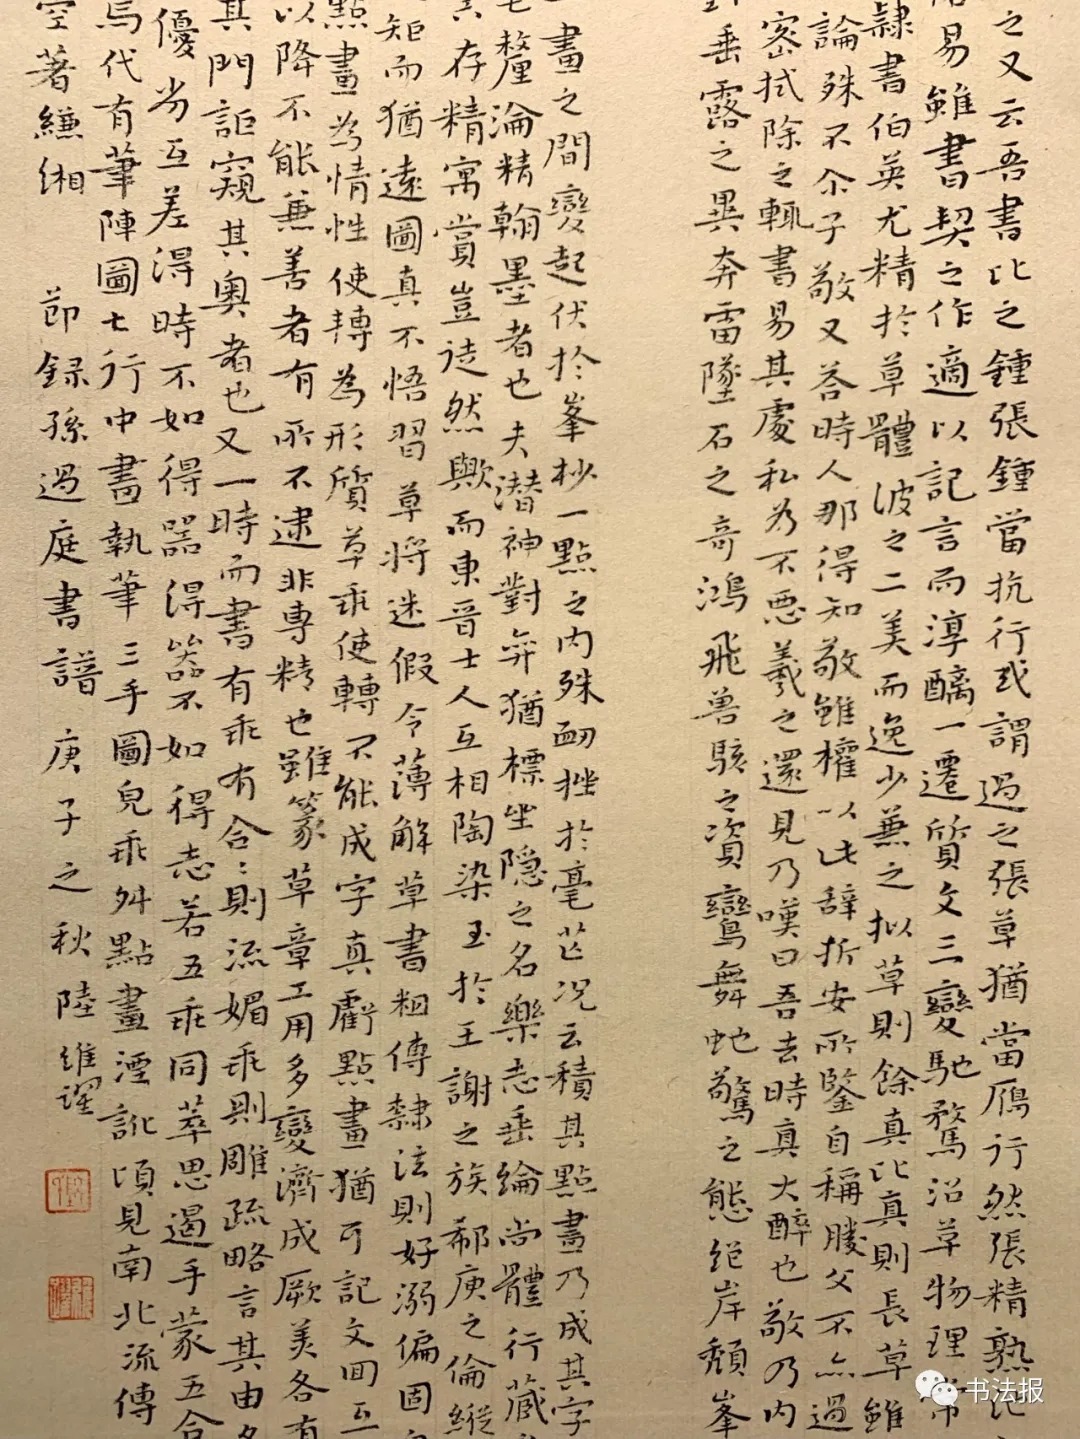 之又云吾書比之鍾張鍾當抗行或謂過之張草猶當鴈行然張精熟比
易雖書契之作適以記言而淳醨一遷質文三變馳騖沿草物理常
隸書伯英尤精於草體彼之二美而逸少兼之拟草則餘真比真則長草雖
論殊不尒子敬又荅時人那得知敬雖權以此辞折安所鑒自稱勝父不亦過
密拭除之輒書易其處私为不惡羲之還見乃嘆曰吾去時真大醉也敬乃内
垂露之異奔雷墜石之奇鴻飛兽駭之資鸞舞虵驚之態絕岸頹峯
畫之間變起伏於峯杪一點之内殊衄挫於毫芒况云積其點畫乃成其字
氂淪精翰墨者也夫潜神對弈猶標坐隱之名樂志垂綸尚體行藏
存精寓賞豈徒然歟而東晉士人互相陶染至於王謝之族郗庾之倫縱
矩而猶遠圖真不悟習草將迷假令薄解草書粗傳隸法則好溺偏固
點畫為情性使轉為形質草乖使轉不能成字真虧點畫猶可記文囬互
以降不能兼善者有所不逮非專精也雖篆草章工用多變濟成厥美各有
其門詎窺其奧者也又一時而書有乖有合:則流媚乖則雕疏略言其由各
優劣互差得時不如得器得器不如得志若五乖同萃思遏手蒙五合
焉代有筆陣圖七行中畵執筆三手圖皃乖舛點畫湮訛頃見南北流傳
空著縑緗 節録孫過庭書譜 庚子之秋陸維
书法报